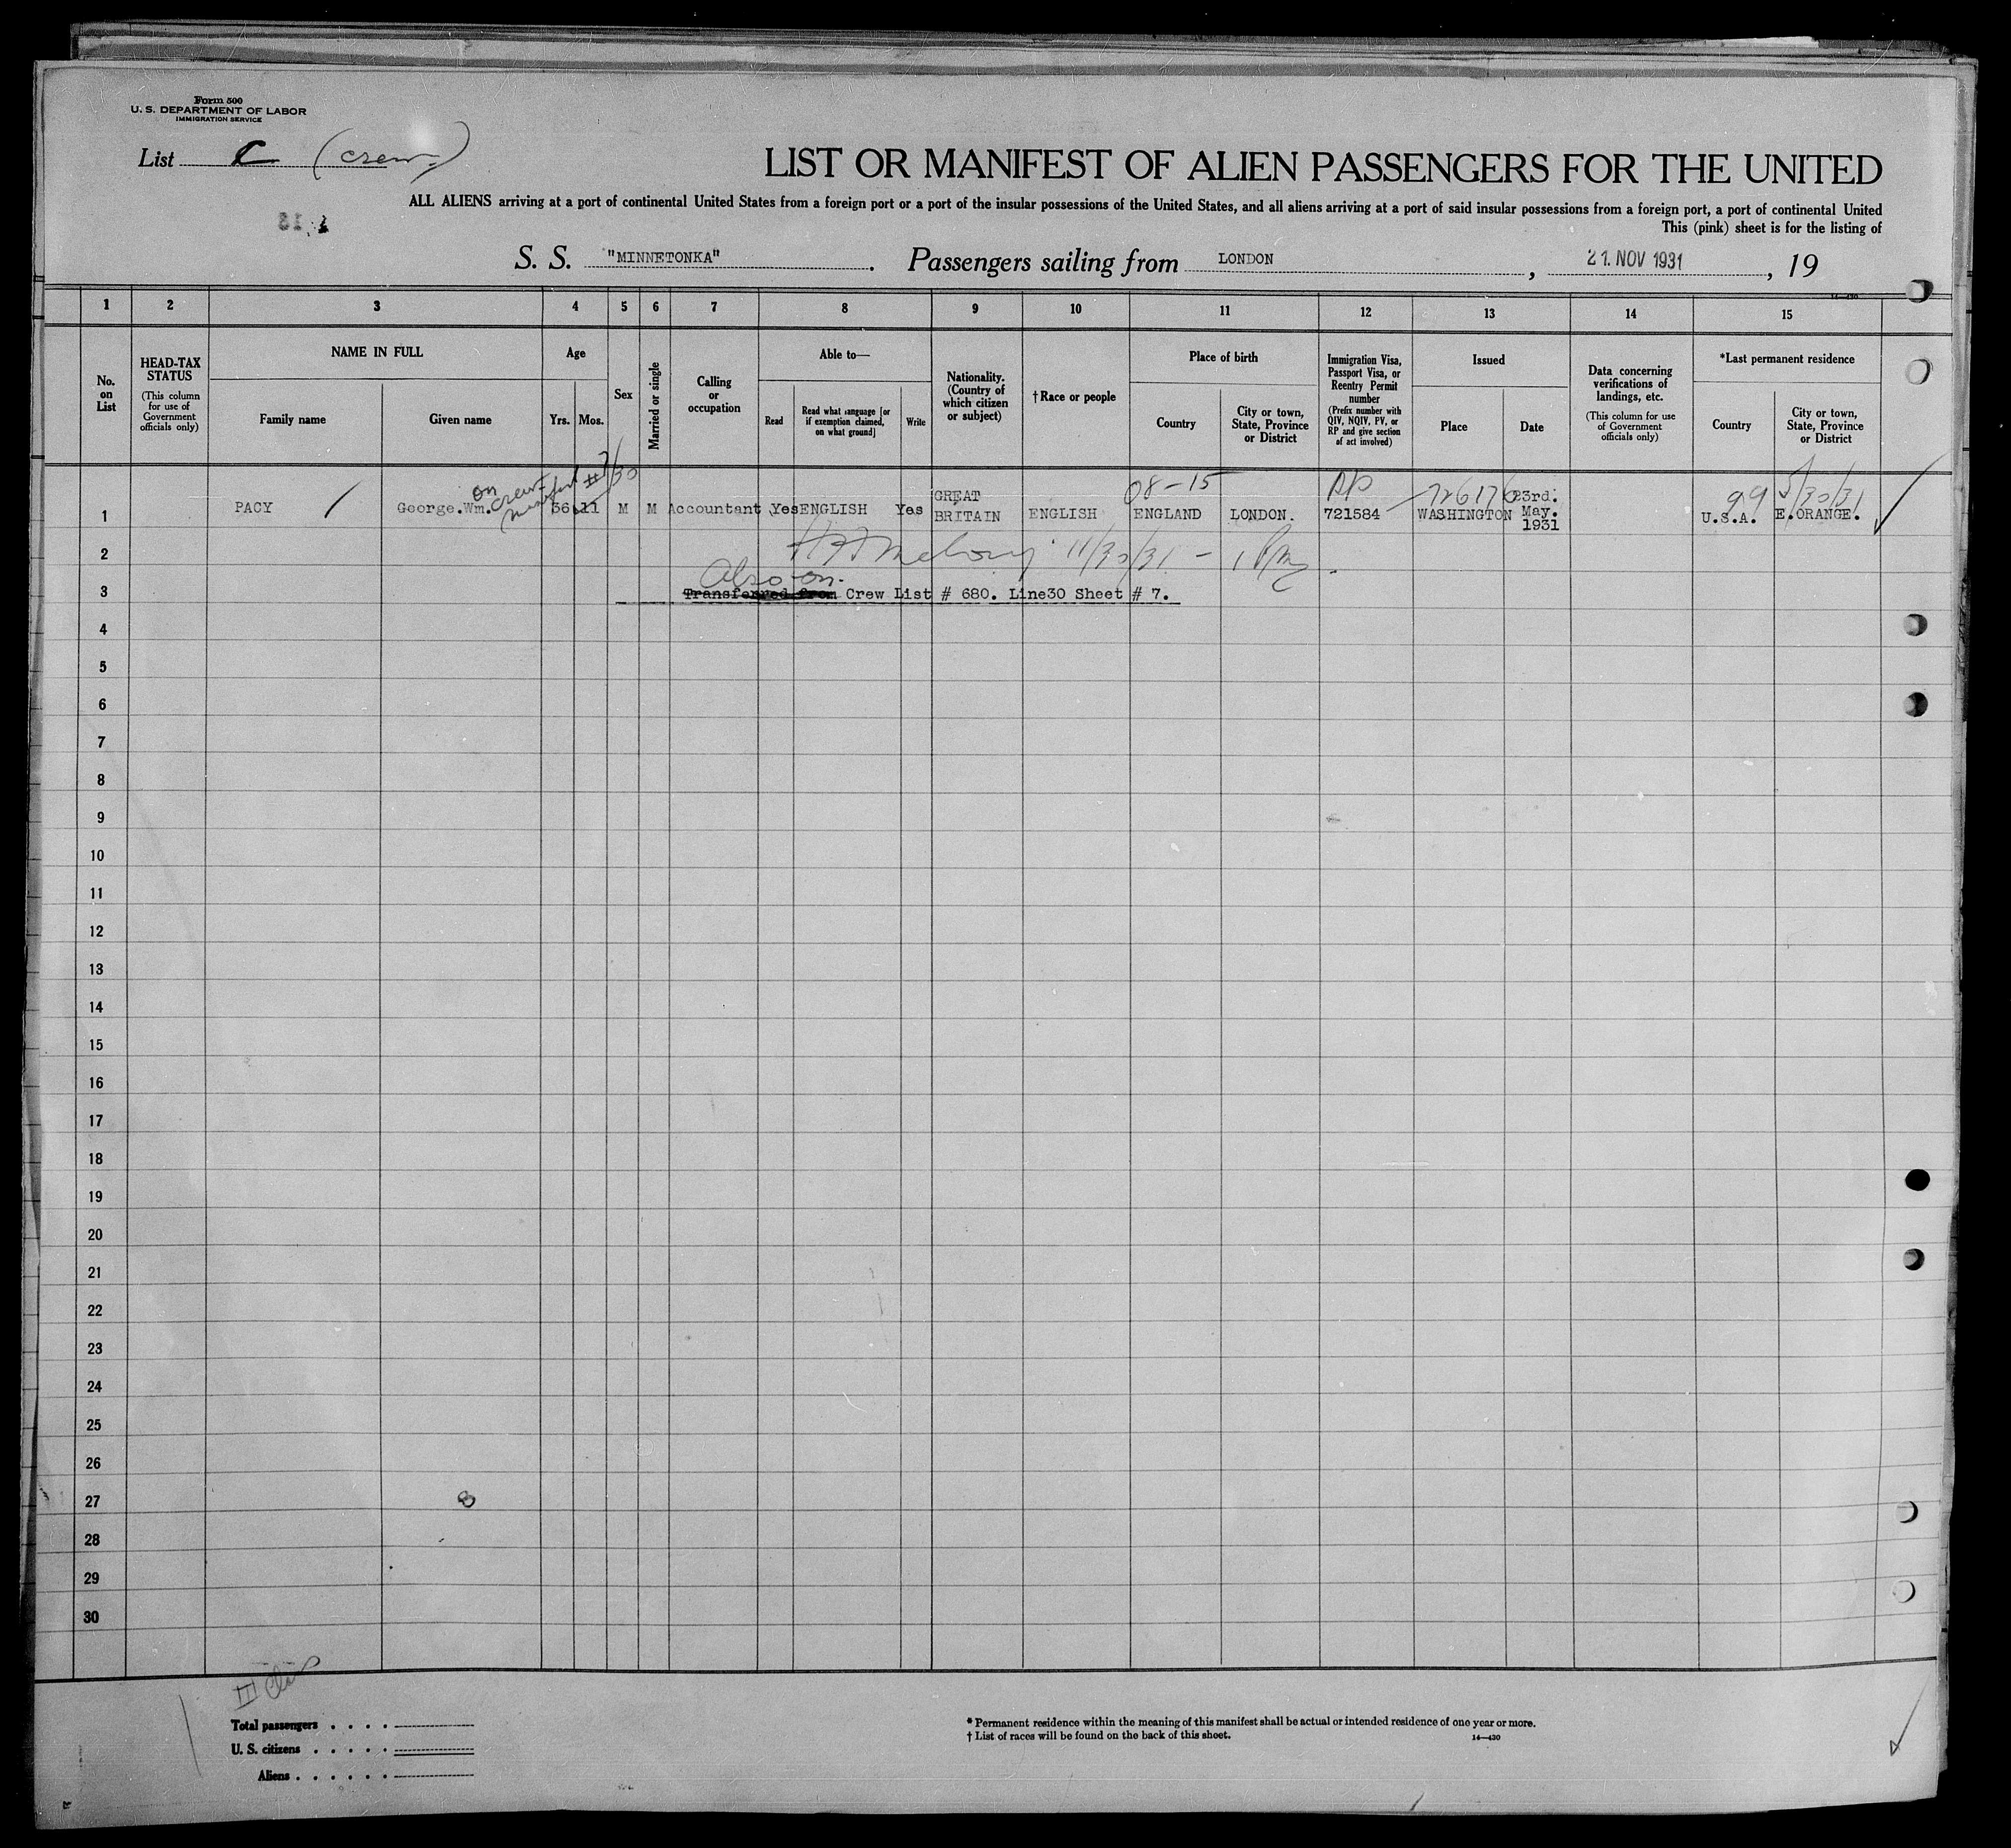 Form 500
U. S. DEPARTMENT OF LABOR
IMMIGRATION SERVICE
List C (crew)
LIST OR MANIFEST OF ALIEN PASSENGERS FOR THE UNITED
ALL ALIENS arriving at a port of continental United States from a foreign port or a port of the insular possessions of the United States, and all aliens arriving at a port of said insular possessions from a foreign port, a port of continental United
This (pink) sheet is for the listing of
S. S. "MINNETONKA". Passengers sailing from LONDON, 21. NOV 1931, 19
1 2 3 4 5 6 7 8 9 10 11 12 13 14 15
No. on List
HEAD-TAX STATUS
(This column for use of Government officials only)
NAME IN FULL
Family name
Given name
Age
Yrs. Mos.
Sex
Married or single
Calling or occupation
Able to—
Read
Read what language [or if exemption claimed, on what ground]
Write
Nationality. (Country of which citizen or subject)
†Race or people
Place of birth
Country
City or town, State, Province or District
Immigration Visa, Passport Visa, or Reentry Permit number
(Prefix number with QIV, NQIV, PV, or RP and give section of act involved)
Issued
Place
Date
Data concerning verifications of landings, etc.
(This column for use of Government officials only)
*Last permanent residence
Country
City or town, State, Province or District
on crew manifest # 7/30
08-15
RP
726176
99
5/30/31
1 PACY George.Wm. 36 11 M M Accountant Yes ENGLISH Yes GREAT BRITAIN ENGLISH ENGLAND LONDON. 721584 WASHINGTON 23rd. May. 1931 U.S.A. E.ORANGE.
2 11/30/31 -
Also on
3 Transferred from Crew List # 680. Line30 Sheet # 7.
4
5
6
7
8
9
10
11
12
13
14
15
16
17
18
19
20
21
22
23
24
25
26
27
28
29
30
III
Total passengers . . . .
U. S. citizens . . . . .
Aliens . . . . . .
* Permanent residence within the meaning of this manifest shall be actual or intended residence of one year or more.
† List of races will be found on the back of this sheet.
14—430